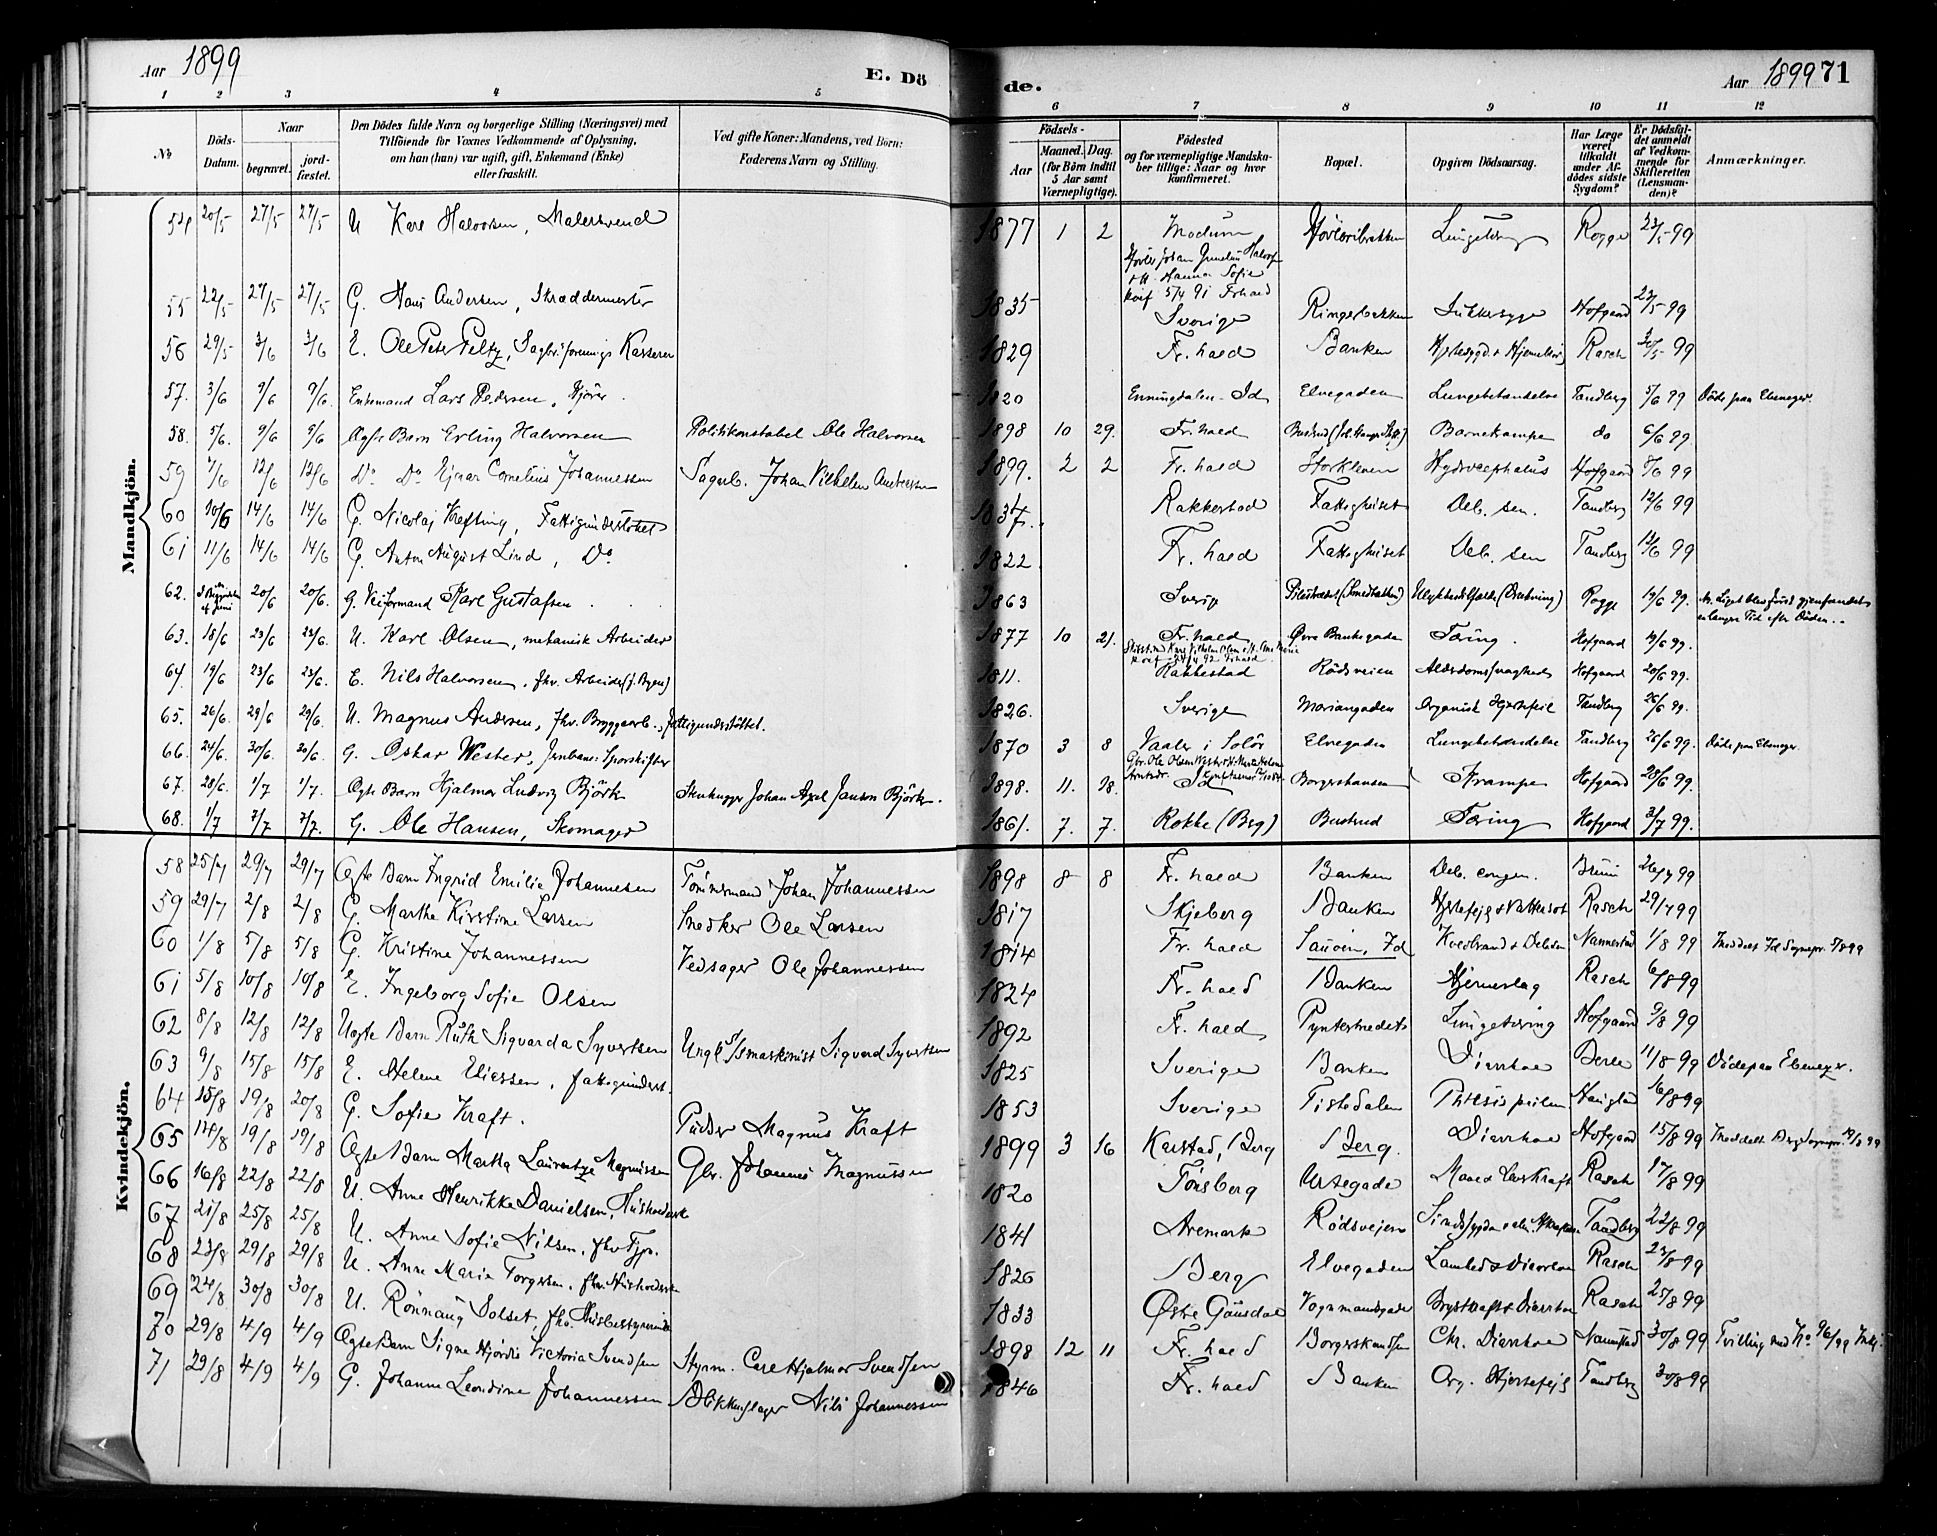 Aar 1899
E. Dö
de.
Aar 1899 71
1 2 3 4 5 6 7 8 9 10 11 12
No
Döds-Datum.
Naar
begravet.
jord-fæstet.
Den Dödes fulde Navn og borgerlige Stilling (Næringsvei) med
Tilföiende for Voxnes Vedkommende af Oplysning,
om han (hun) var ugift, gift, Enkemand (Enke)
eller fraskilt.
Ved gifte Koner: Mandens, ved Börn:
Faderens Navn og Stilling.
Födsels-
Aar
Maaned. Dag.
(for Börn indtil 5 Aar samt Værnepligtige).
Födested
og for værnepligtige Mandska-
ber tillige: Naar og hvor
konfirmeret.
Bopæl.
Opgiven Dödsaarsag.
Har Læge været tilkaldt under Af-dödes sidste Sygdom?
Er Dödsfal-det anmeldt af Vedkom-mende for Skifteretten (Lensman-den)?
Anmærkninger.
Mandkjön.
54 20/5 27/5 27/5 U Karl Halvorsen, Malersvend 1877 1 2 Modum Rogge 23/5 99
55 22/5 27/5 27/5 G. Hans Andersen, Skræddermester 1835 Sverige Ringerbakken Sukkersyge Hofgaard 23/5 99
56 29/5 3/6 3/6 E. Ole Peter Peltz, Kasserer 1829 Fr.hald Banken Rasch 30/5 99
57. 3/6 9/6 9/6. Enkemand Lars Pedersen, Kjörer 1820 Enningdalen Id Elvegaden Lungebetændelse Tandberg 5/6 99 Döde paa Ebenezer.
58. 5/6. 9/6 9/6 Ægte Barn Erling Halvorsen Politikonstabel Ole Halvorsen 1898 10 29. Fr.hald Buskrud Barnekrampe do 6/6 99.
59 7/6 12/6 12/6 Do Do Ejnar Cornelius Johannessen Sagarb. Johan Vilhelm Andersen 1899. 2 2 Fr. hald Storkleven Hydrocephalus Hofgaard 8/6 99
60 10/6 14/6 14/6 G. Nicolaj Krefting, Fattigunderstöttet 1837. Rakkestad Fattighuset Deb. sen. Tandberg 12/6 99
61 11/6 14/6 14/6 G. Anton August Lind, Do 1822 Fr. hald Fattighuset Deb. sen Tandberg 12/6 99
62. 20/6 20/6. G. Veiformand Karl Gustafsen 1863 Sverig Ulykkestilfælde (Drukning) Rogge 19/6 99.
63. 18/6 23/6 23/6. U. Karl Olsen, mekanisk Arbeider 1877 10 21. Fr. hald Övre Banksgaden Tæring. Hofgaard 19/6 99.
64. 19/6 23/6 23/6. E. Nils Halvorsen, fhv. Arbeider 1811. Rakkestad Rödsveien Alderdomssvaghed Hofgaard 20/6 99.
65. 26/6. 29/6 29/6. U. Magnus Andersen, fhv. Bryggearb., fattigunderstöttet. 1826. Sverige Mariagaden Organisk Hjertefeil Tandberg 26/6 99.
66. 24/6. 30/6 30/6. G. Oskar Wester, Jernbane-Sporskifter 1870 3 8 Vaaler i Solör Elvegaden Lungebetændelse Tandberg 26/6 99. Döde paa Ebenezer.
67. 28/6. 1/7 1/7. Ægte Barn Hjalmar Ludvig Björk Stenhugger Johan Axel Janson Björk. 1898. 11. 18. Id Borgerskansen Krampe Hofgaard 28/6 99.
68. 1/7 7/7 7/7. G. Ole Hansen, Skomager 1861. 7. 7. Rokke (Berg) Buskrud Tæring Hofgaard 3/7 99.
Kvindekjön.
58 25/7 29/7 29/7 Ægte Barn Ingrid Emilie Johannesen Tömmermand Johan Johannessen 1898 8 8 Fr. hald Banken Deb. congen. Bruun 26/7 99
59 29/7 2/8 2/8 G. Marthe Kirstine Larsen Snedker Ole Larsen 1817 Skjeberg Banken Hjertefejl & Vattersot Rasch 29/7 99
60 1/8 5/8 5/8 G. Kristine Johannessen Vedsager Ole Johannessen 1844 Fr. hald Sauöen, Id Koldbrand Nannestad 1/8 99 Meddelt Id Sognepr. 7/8 99
61 5/8 10/8 10/8 E. Ingeborg Sofie Olsen 1824 Fr. hald Banken Hjerneslag Rasch 6/8 99
62 8/8 12/8 12/8 Uægte Barn Ruth Sigvarda Syvertsen Ungk S/Smaskinist Sigvard Syvertsen 1892 Fr. hald Lungetæring Hofgaard 9/8 99
63 9/8 15/8 15/8 E. Helene Eliessen, fattigunderst. 1825 Sverige Banken Diarrhoe 11/8 99 Döde paa Ebenezer.
64 15/8 19/8 20/8 G. Sofie Kraft. Pudser Magnus Kraft 1853 Sverige Tistedalen Phtisis pulm 16/8 99
65 14/8 19/8 19/8 Ægte Barn Martha Laurentze Magnussen Gbr. Johannes Magnussen 1899 3 16 Karlstad, Berg Berg. Diarrhoe Hofgaard 15/8 99 Meddelt Berg Sognepr.
66 16/8 22/8 22/8 U. Anne Henrikke Danielsen, Husholderske 1820 Tönsberg Urtegade Mavekræft Rasch 17/8 99
67 21/8 25/8 25/8 U. Anne Sofie Nilsen, fhv Tjp. 1841 Aremark Rödsvejen Tandberg 22/8 99
68 23/8 29/8 29/8 U. Anne Marie Torgersen, fhv. Husholderske 1826 Berg Elvegaden Lamhed & Diarrhoe Rasch 23/8 99
69 24/8 30/8 30/8 U. Rönnaug Solset, fhv. Husbestyrerinde 1833 Östre Gausdal Vognmandsgade Brystkræft & Diarrhoe Rasch 25/8 99
70 29/8 4/9 4/9 Ægte Barn Signe Hjördis Victoria Svendsen Styrm. Carl Hjalmar Svendsen 1898 12 11 Fr. hald Borgerskansen Chr. Diarrhoe Nannestad 30/8 99 Tvilling med No 96/99
71 29/8 4/9 4/9 G. Johanne Leondine Johannessen Blikkenslager Nils Johannessen 1846 Fr. hald Banken Org. Hjertefejl Tandberg 30/8 99